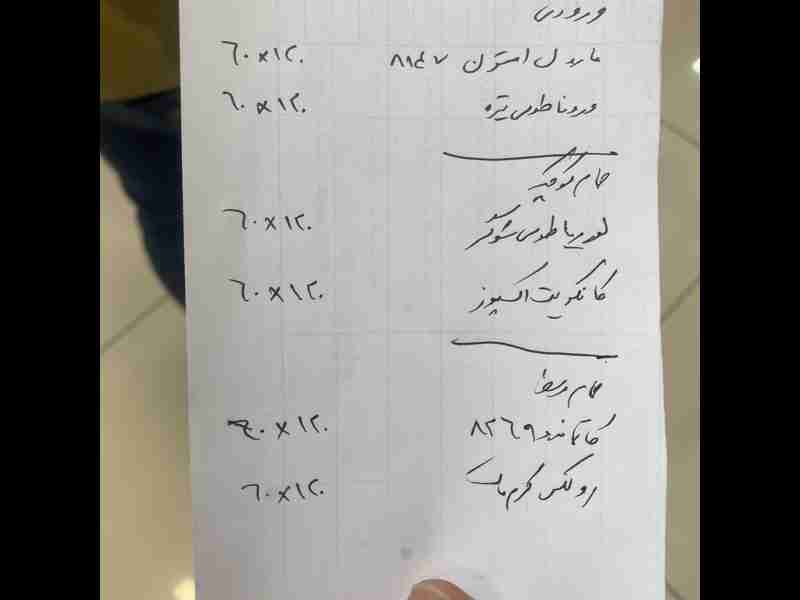 ورودی
مارول استون ۸۱۴۷ ۶۰×۱۲۰
ورونا طوسی تیره ۶۰×۱۲۰
حمام کوچیک
طوسی ۶۰×۱۲۰
کانکریت اکسپوز ۶۰×۱۲۰
حمام
کاتماندو ۸۲۶۹ ۶۰×۱۲۰
رولکس کرم مات ۶۰×۱۲۰